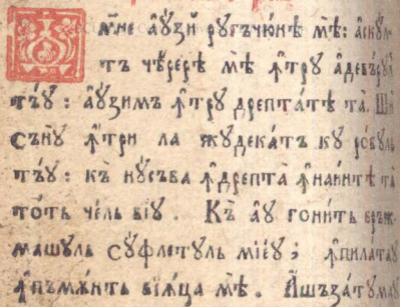 мне ау҆зи ругъчюнѣ мѣ: аскул
тъ чѣрерѣ мѣ ꙟтру адевърул
тъу: ау҆зимъ ꙟтру дрептатѣ та. Ши
сънꙋ ꙟтри ла жудекатъ ку робуль
тъу: къ нꙋсъва ꙟдрепта ꙟнаинтѣ та
тоть чель вїу. Къ ау гонить връж
машуль суфлетуль мїеу; ꙟпилатау
ꙟпъмѫнть вїѧца мѣ. Ашъзатумау